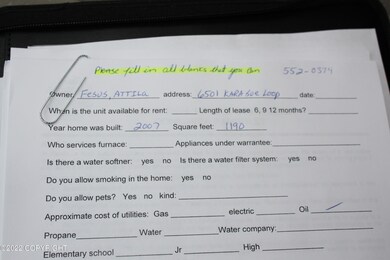 Please fill in all blanks that you can 552-0374
Owner: FESUS, ATTILA address: 6501 KARA SUE Loop date:
When is the unit available for rent: Length of lease. 6, 9 12 months?
Year home was built: 2007 Square feet: 1190
Who services furnace: Appliances under warrantee:
Is there a water softner: yes no Is there a water filter system: yes no
Do you allow smoking in the home: yes no
Do you allow pets? Yes no kind:
Approximate cost of utilities: Gas electric Oil
Propane Water Water company:
Elementary school Jr High
©2022 COPYRIGHT